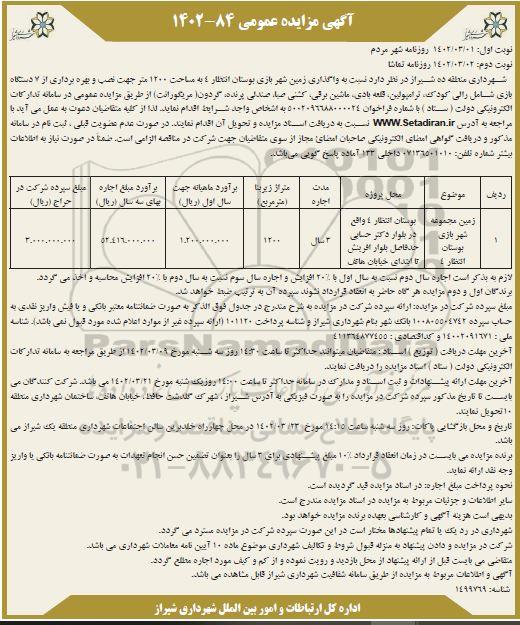 آگهی مزایده عمومی ۸۴-۱۴۰۲
نوبت اول: ۱۴۰۲/۰۳/۰۱ روزنامه شهر مردم
نوبت دوم: ۱۴۰۲/۰۳/۰۲ روزنامه تماشا
شهرداری منطقه ده شیراز در نظر دارد نسبت به واگذاری زمین شهر بازی بوستان انتظار ۴ به مساحت ۱۲۰۰ متر جهت نصب و بهره برداری از ۷ دستگاه
بازی شامل رالی کودک، ترامپولین، قلعه بادی، ماشین برقی، کشتی صبا، صندلی پرنده، گردون( مریگوراند) از طریق مزایده عمومی در سامانه تدارکات
الکترونیکی دولت ( ستاد ) با شماره فراخوان ۵۰۰۲۰۹۶۶۸۸۰۰۰۰۲۴ به اشخاص واجد شرایط اقدام نماید. لذا از کلیه متقاضیان دعوت به عمل می آید با
مراجعه به آدرس WWW.Setadiran.ir نسبت به دریافت اسناد مزایده و تحویل آن اقدام نمایند. در صورت عدم عضویت قبلی ، ثبت نام در سامانه
مذکور و دریافت گواهی امضای الکترونیکی صاحبان امضای مجاز از سوی متقاضیان جهت شرکت در مناقصه الزامی است. ضمنا در صورت نیاز به اطلاعات
بیشتر شماره تلفن: ۰۷۱۳۶۵۰۱۰۱۰ داخلی ۱۳۳ آماده پاسخ گویی می‌باشد.
ردیف موضوع محل پروژه مدت اجاره متراژ زیربنا (مترمربع) برآورد ماهیانه جهت سال اول (ریال) برآورد مبلغ اجاره بهای سه سال (ریال) مبلغ سپرده شرکت در حراج (ریال)
۱ زمین مجموعه شهر بازی بوستان انتظار ۴ بوستان انتظار ۴ واقع در بلوار دکتر حسابی حدفاصل بلوار آفرینش تا ابتدای خیابان هاتف ۳ سال ۱۲۰۰ ۱,۲۰۰,۰۰۰,۰۰۰ ۵۲,۴۱۶,۰۰۰,۰۰۰ ۳,۰۰۰,۰۰۰,۰۰۰
لازم به ذکر است اجاره سال دوم نسبت به سال اول با ۲۰٪ افزایش و اجاره سال سوم نسبت به سال دوم با ۲۰٪ افزایش محاسبه و اخذ می گردد.
برندگان اول و دوم مزایده هر گاه حاضر به انعقاد قرارداد نشوند سپرده آن به ترتیب ضبط خواهد شد.
مبلغ سپرده شرکت در مزایده: ارائه سپرده شرکت در مزایده به شرح مندرج در جدول فوق الذکر به صورت ضمانتنامه معتبر بانکی و یا فیش واریز نقدی به
حساب سپرده ۱۰۰۸۰۵۵۰۴۷۴۲ بانک شهر بنام شهرداری شیراز و شناسه پرداخت ۱۰۱۱۲۰ (ارائه سپرده غیر از موارد اعلام شده مورد قبول نمی باشد). شناسه
ملی : ۱۴۰۰۲۰۹۱۶۷۱ و کداقتصادی : ۴۱۱۳۶۴۸۷۷۴۵۵
آخرین مهلت دریافت ( توزیع ) اسناد : متقاضیان میتوانند حداکثر تا ساعت ۱۴:۳۰ روز سه شنبه مورخ ۱۴۰۲/۰۳/۰۹ از طریق مراجعه به سامانه تدارکات
الکترونیکی دولت ( ستاد ) اسناد مزایده را دریافت نمایند.
آخرین مهلت ارائه پیشنهادات و ثبت اسناد و مدارک در سامانه حداکثر تا ساعت ۱۴:۰۰ روز یک شنبه مورخ ۱۴۰۲/۰۳/۲۱ می باشد. شرکت کنندگان می
بایست تا تاریخ مذکور سپرده شرکت در مزایده را به صورت فیزیکی به آدرس شیراز ، شهرک گلدشت حافظ، خیابان هاتف، ساختمان شهرداری منطقه
۱۰ تحویل نمایند.
تاریخ و محل بازگشایی پاکات: روز سه شنبه ساعت ۱۴:۱۵ مورخ ۱۴۰۲/۰۳/۲۳ در محل چهارراه خلدبرین سالن اجتماعات شهرداری منطقه یک شیراز می
باشد.
برنده مزایده می بایست در زمان انعقاد قرارداد ۱۰٪ مبلغ پیشنهادی برای ۳ سال را بعنوان تضمین حسن انجام تعهدات به صورت ضمانتنامه بانکی یا واریز
وجه نقد ارائه نماید.
نحوه پرداخت مبلغ اجاره: در اسناد مزایده قید گردیده است.
سایر اطلاعات و جزئیات مربوط به مزایده در اسناد مزایده مندرج است.
بدیهی است هزینه آگهی و کارشناسی بعهده برنده مزایده خواهد بود.
شهرداری در رد یک یا تمام پیشنهادها مختار است در این صورت سپرده شرکت در مزایده مسترد می گردد.
شرکت در مزایده و دادن پیشنهاد به منزله قبول شروط و تکالیف شهرداری موضوع ماده ۱۰ آیین نامه معاملات شهرداری می باشد.
متقاضی می بایست قبل از ارائه پیشنهاد از محل بازدید و رویت نموده و از کم و کیف مورد اجاره مطلع گردد.
آگهی و اطلاعات مربوط به مزایده از طریق سامانه شفافیت شهرداری شیراز قابل مشاهده می باشد.
شناسه: ۱۴۹۹۷۶۹
اداره کل ارتباطات و امور بین الملل شهرداری شیراز
ParsNamadData
۰۲۱-۸۸۳۴۹۶۷۰-۵